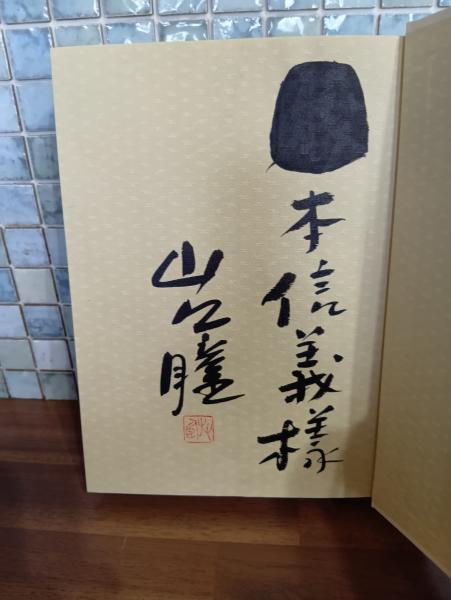 本信義様
山口瞳